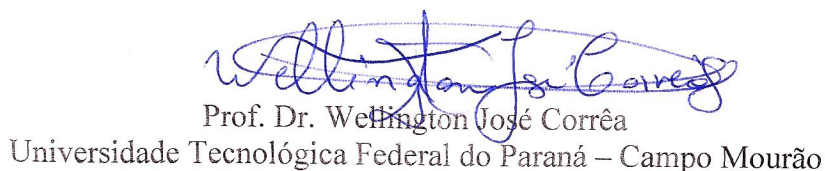 Wellington José Corrêa
Prof. Dr. Wellington José Corrêa
Universidade Tecnológica Federal do Paraná – Campo Mourão